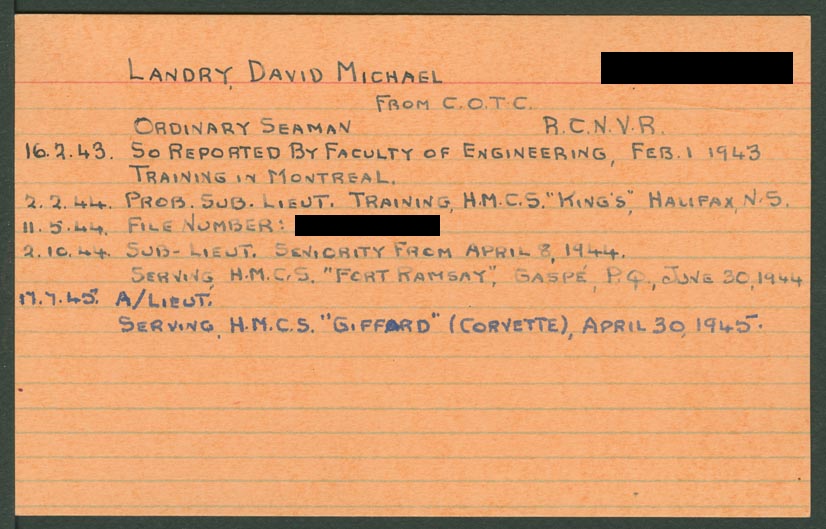 LANDRY, DAVID MICHAEL
FROM C.O.T.C.
ORDINARY SEAMAN R.C.N.V.R.
16.2.43. SO REPORTED BY FACULTY OF ENGINEERING, FEB. 1 1943
TRAINING IN MONTREAL.
2.2.44. PROB. SUB. LIEUT. TRAINING, H.M.C.S. "KING'S", HALIFAX, N.S.
11.5.44. FILE NUMBER:
2.10.44. SUB-LIEUT. SENIORITY FROM APRIL 8, 1944.
SERVING, H.M.C.S. "FORT RAMSAY", GASPÉ, P.Q., JUNE 30, 1944
17.7.45. A/LIEUT.
SERVING, H.M.C.S. "GIFFARD" (CORVETTE), APRIL 30, 1945.